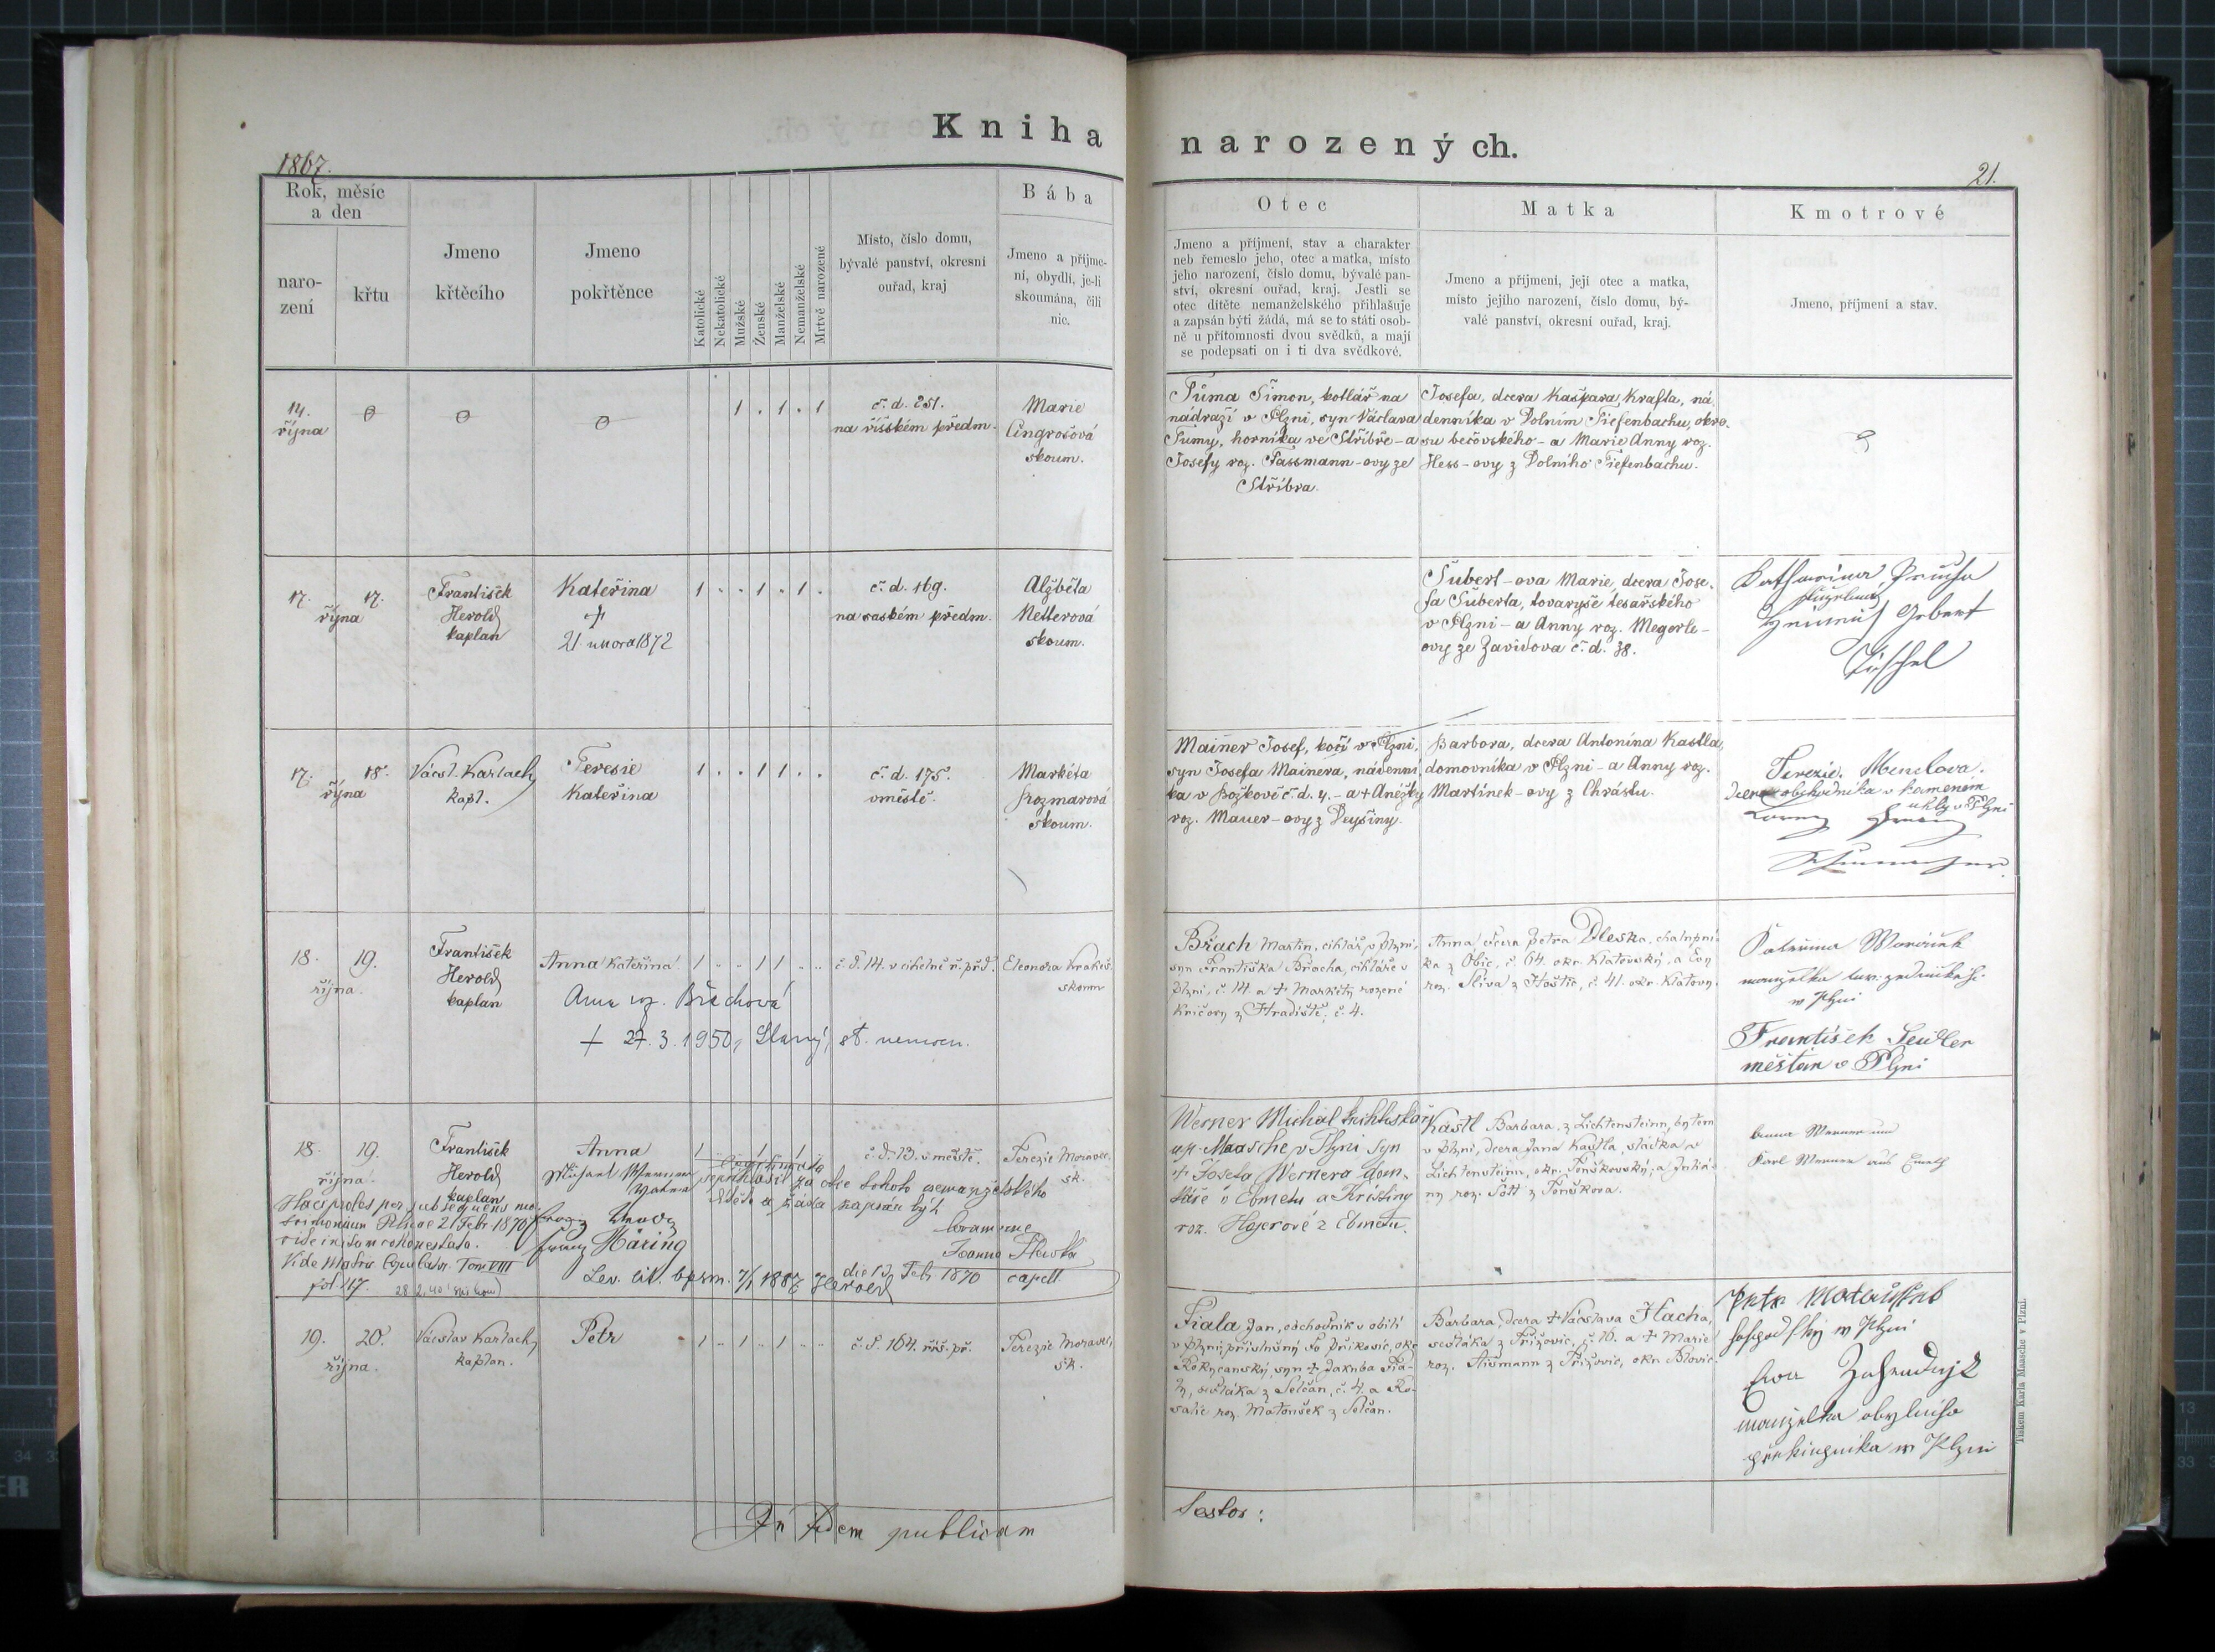 Kniha
narozených.
1867.
21.
Rok, měsíc
a den
naro-
zení
křtu
Jmeno
křtěcího
Jmeno
pokřtěnce
Katolické
Nekatolické
Mužské
Ženské
Manželské
Nemanželské
Mrtvě narozené
Místo, číslo domu,
bývalé panství, okresní
ouřad, kraj
Bába
Jmeno a příjme-
ní, obydlí, je-li
skoumána, čili
nic.
Otec
Jmeno a příjmení, stav a charakter
neb řemeslo jeho, otec a matka, místo
jeho narození, číslo domu, bývalé pan-
ství, okresní ouřad, kraj. Jestli se
otec dítěte nemanželského přihlašuje
a zapsán býti žádá, má se to státi osob-
ně u přítomnosti dvou svědků, a mají
se podepsati on i ti dva svědkové.
Matka
Jmeno a příjmení, její otec a matka,
místo jejího narození, číslo domu, bý-
valé panství, okresní ouřad, kraj.
Kmotrové
Jmeno, příjmení a stav.
14.
října
1 . 1 . 1
č. d. 251.
na říšském předm.
Marie
Cingrošová
skoum.
Tůma Šimon, kotlář na
nádraží v Plzni, syn Václava
Tumy, horníka ve Stříbře - a
Josefy roz. Fassmann-ovy ze
Stříbra.
Josefa, dcera Kašpara Krafta, ná
denníka v Dolním Tiefenbachu, okre-
su bečovského - a Marie Anny roz.
Hess-ovy z Dolního Tiefenbachu.
17. 17.
října
František
Herold
kaplan
Kateřina
†
21. února 1872
1 . . 1 . 1 .
č. d. 169.
na saském předm.
Alžběta
Netterová
skoum.
Šubert-ova Marie, dcera Jose-
fa Šuberta, tovaryše tesařského
v Plzni - a Anny roz. Megerle-
ovy ze Zavidova č. d. 38.
17. 18.
října
Vácsl. Karlach
kapl.
Teresie
Kateřina
1 . . 1 1 . .
č. d. 175.
v městě.
Markéta
Rozmarová
skoum.
Mainer Josef, kočí v Plzni,
syn Josefa Mainera, nádenní
ka v Božkově č. d. 4. - a † Anežky
roz. Mauer-ovy z Deyšiny.
Barbora, dcera Antonína Kastla,
domovníka v Plzni - a Anny roz.
Martínek-ovy z Chrástu.
Terezie
dcera obchodníka v kameném
uhlý v Plzni
18. 19.
října.
František
Herold
kaplan
Anna Kateřina
Anna roz. Břachová
† 27. 3. 1950, Slaný, st. nemocn.
1 . . 1 1 . .
č. d. 14. v cihelně ř. před.
Eleonora
skoum
Břach Martin, cihlář v Plzni,
syn Františka Břacha, cihláře v
Plzni, č. 14. a † Markéty rozené
Kričovy z Hradiště, č. 4.
Anna dcera Petra Dleska, chalupní-
ka z Obic, č. 64. okr. Klatovský, a Evy
roz. Slíva z Hoštic, č. 41. okr. Klatovy.
w Plzni
František Seidler
měšťan v Plzni
18. 19.
října.
František
Herold
kaplan
Anna
č. d. 13. v městě.
Terezie Moravec
sk.
se přihlásil za otce tohoto nemanželského
dítěte a žádá zapsán býti
Franz Häring
Coram me
Joanne
die 13. Febr 1870 capell.
Vide Matric Copulator. Tom VIII
fol 117.
Herold
Werner Michal
up. Maasche v Plzni syn
† Josefa Wernera dom-
káře v Ebmetu a Kristiny
roz. Hajerové z Ebmetu.
Kastl Barbara, z Lichtensteinu, bytem
v Plzni, dcera Jana Kastla, sládka v
Lichtensteinu, okr. Touškovský, a Juliá-
ny roz. Sött z Touškova.
Anna Werner und
Karl Werner aus
19. 20.
října.
Václav Karlach,
kaplan.
Petr
1 . 1 . 1 . .
č. d. 164. říš. př.
Terezie Moravec,
sk.
Fiala Jan, obchodník v obilí
v Plzni příslušný do Přikosic, okr
Rokycanský, syn † Jakuba Fia-
ly, sedláka z Selčan, č. 4. a Ro-
salie roz. Matoušek z Selčan.
Barbara, dcera † Václava Hacha,
sedláka z Třižovic, č. 16. a † Marie
roz. Aišmann z Třižovic, okr. Blovic.
Petr Matoušek
w Plzni
Ewa
manželka
w Plzni
In fidem publicam
Testor:
Tiskem Karla Maasche v Plzni.